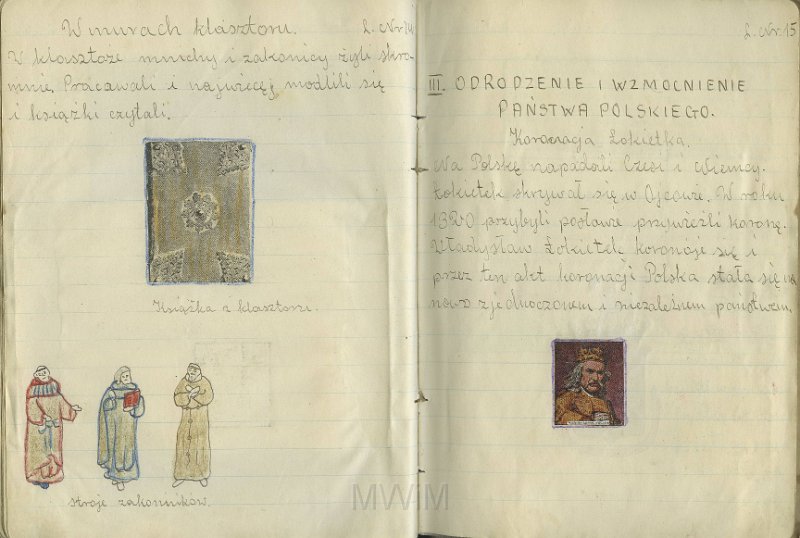 W murach klasztoru. L. Nr 14
W klasztoże mnichy i zakonicy żyli skro-
mnie. Pracawali i najwięcej modlili się
i książki czytali.
Książka z klasztoru.
stroje zakonników.
L. Nr. 15
III. ODRODZENIE I WZMOCNIENIE
PAŃSTWA POLSKIEGO.
Koronacja Łokietka.
Na Polskę napadali Czesi i Niemcy.
Łokietek skrywał się w Ojcowie. W roku
1320 przybyli posłowe przywieźli koronę.
Władysław Łokietek koronuje się i
przez ten akt koronacji Polska stała się na
nowo zjednoczonem i niezależnem państwem.
MWM